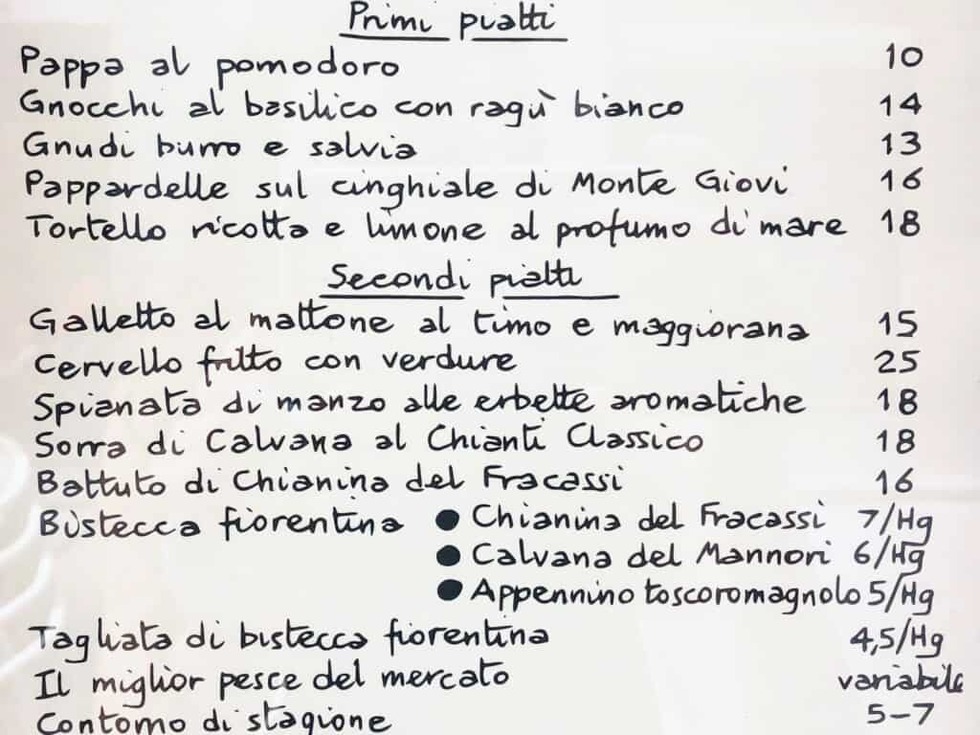 Primi piatti
Pappa al pomodoro 10
Gnocchi al basilico con ragù bianco 14
Gnudi burro e salvia 13
Pappardelle sul cinghiale di Monte Giovi 16
Tortello ricotta e limone al profumo di mare 18
Secondi piatti
Galletto al mattone al timo e maggiorana 15
Cervello fritto con verdure 25
Spianata di manzo alle erbette aromatiche 18
Sorra di Calvana al Chianti Classico 18
Battuto di Chianina del Fracassi 16
Bistecca fiorentina ● Chianina del Fracassi 7/Hg
● Calvana del Mannori 6/Hg
● Appennino toscoromagnolo 5/Hg
Tagliata di bistecca fiorentina 4,5/Hg
Il miglior pesce del mercato variabile
Contorno di stagione 5-7